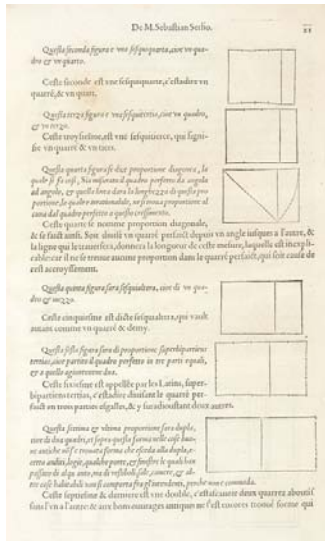 De M. Sebastian Serlio. 21
Questa seconda figura e vno sesquiquarto, cioe vn qua-
dro & vn quarto.
Ceste seconde est vne sesquiquarte, c'estadire vn
quarré, & vn quart.
Questa terza figura e vno sesquiterzo, cioe vn quadro,
& vn terzo.
Ceste troysiesme, est vne sesquitierce, qui signi-
fie vn quarré & vn tiers.
Questa quarta figura se dice proportione diagonea, la
quale si fa cosi, Sia misurato il quadro perfetto da angolo
ad angolo, & quella linea dara la longhezza di questa pro
portione, la quale e irrationabile, ne si troua proportione al
cuna dal quadro perfetto a questo crescimento.
Ceste quarte se nomme proportion diagonale,
& se faict ainsi. Soit diuisé vn quarré perfaict depuis vn angle iusques a l'autre, &
la ligne qui le trauersera, donnera la longueur de ceste mesure, laquelle est inexpli-
cable: car il ne se treuue aucune proportion dans le quarré perfaict, qui soit cause de
cest accroyssement.
Questa quinta figura sara sesquialtera, cioe di vn qua-
dro & mezzo.
Ceste cinquiesme est dicte sesquialtera, qui vault
autant comme vn quarré & demy.
Questa sesta figura sara di proportione superbipartiens
tertias, cioe partito il quadro perfetto in tre parte equali,
& a quello agiontoui due.
Ceste sixiesme est appellée par les Latins, super-
bipartiens tertias, c'estadire diuisant le quarré per-
faict en trois parties esgalles, & y suradioustant deux autres.
Questa settima & vltima proportione sara dupla,
cioe di dua quadri, et sopra questa forma nelle cose buo-
ne antiche non se trouata forma che ecceda alla dupla, e-
cetto anditi, logie, qualche porte, & fenestre le quali han
passato di alquanto, ma di vestiboli, sale, camere, & al-
tre cose habitabili non si comporta fra gl'intendenti, perche non e commoda.
Ceste septiesme & derniere est vne double, c'estascauoir deux quarrez aboutis
sans l'en a l'autre: & aux bons ouurages antiques ne s'est encores trouué forme qui